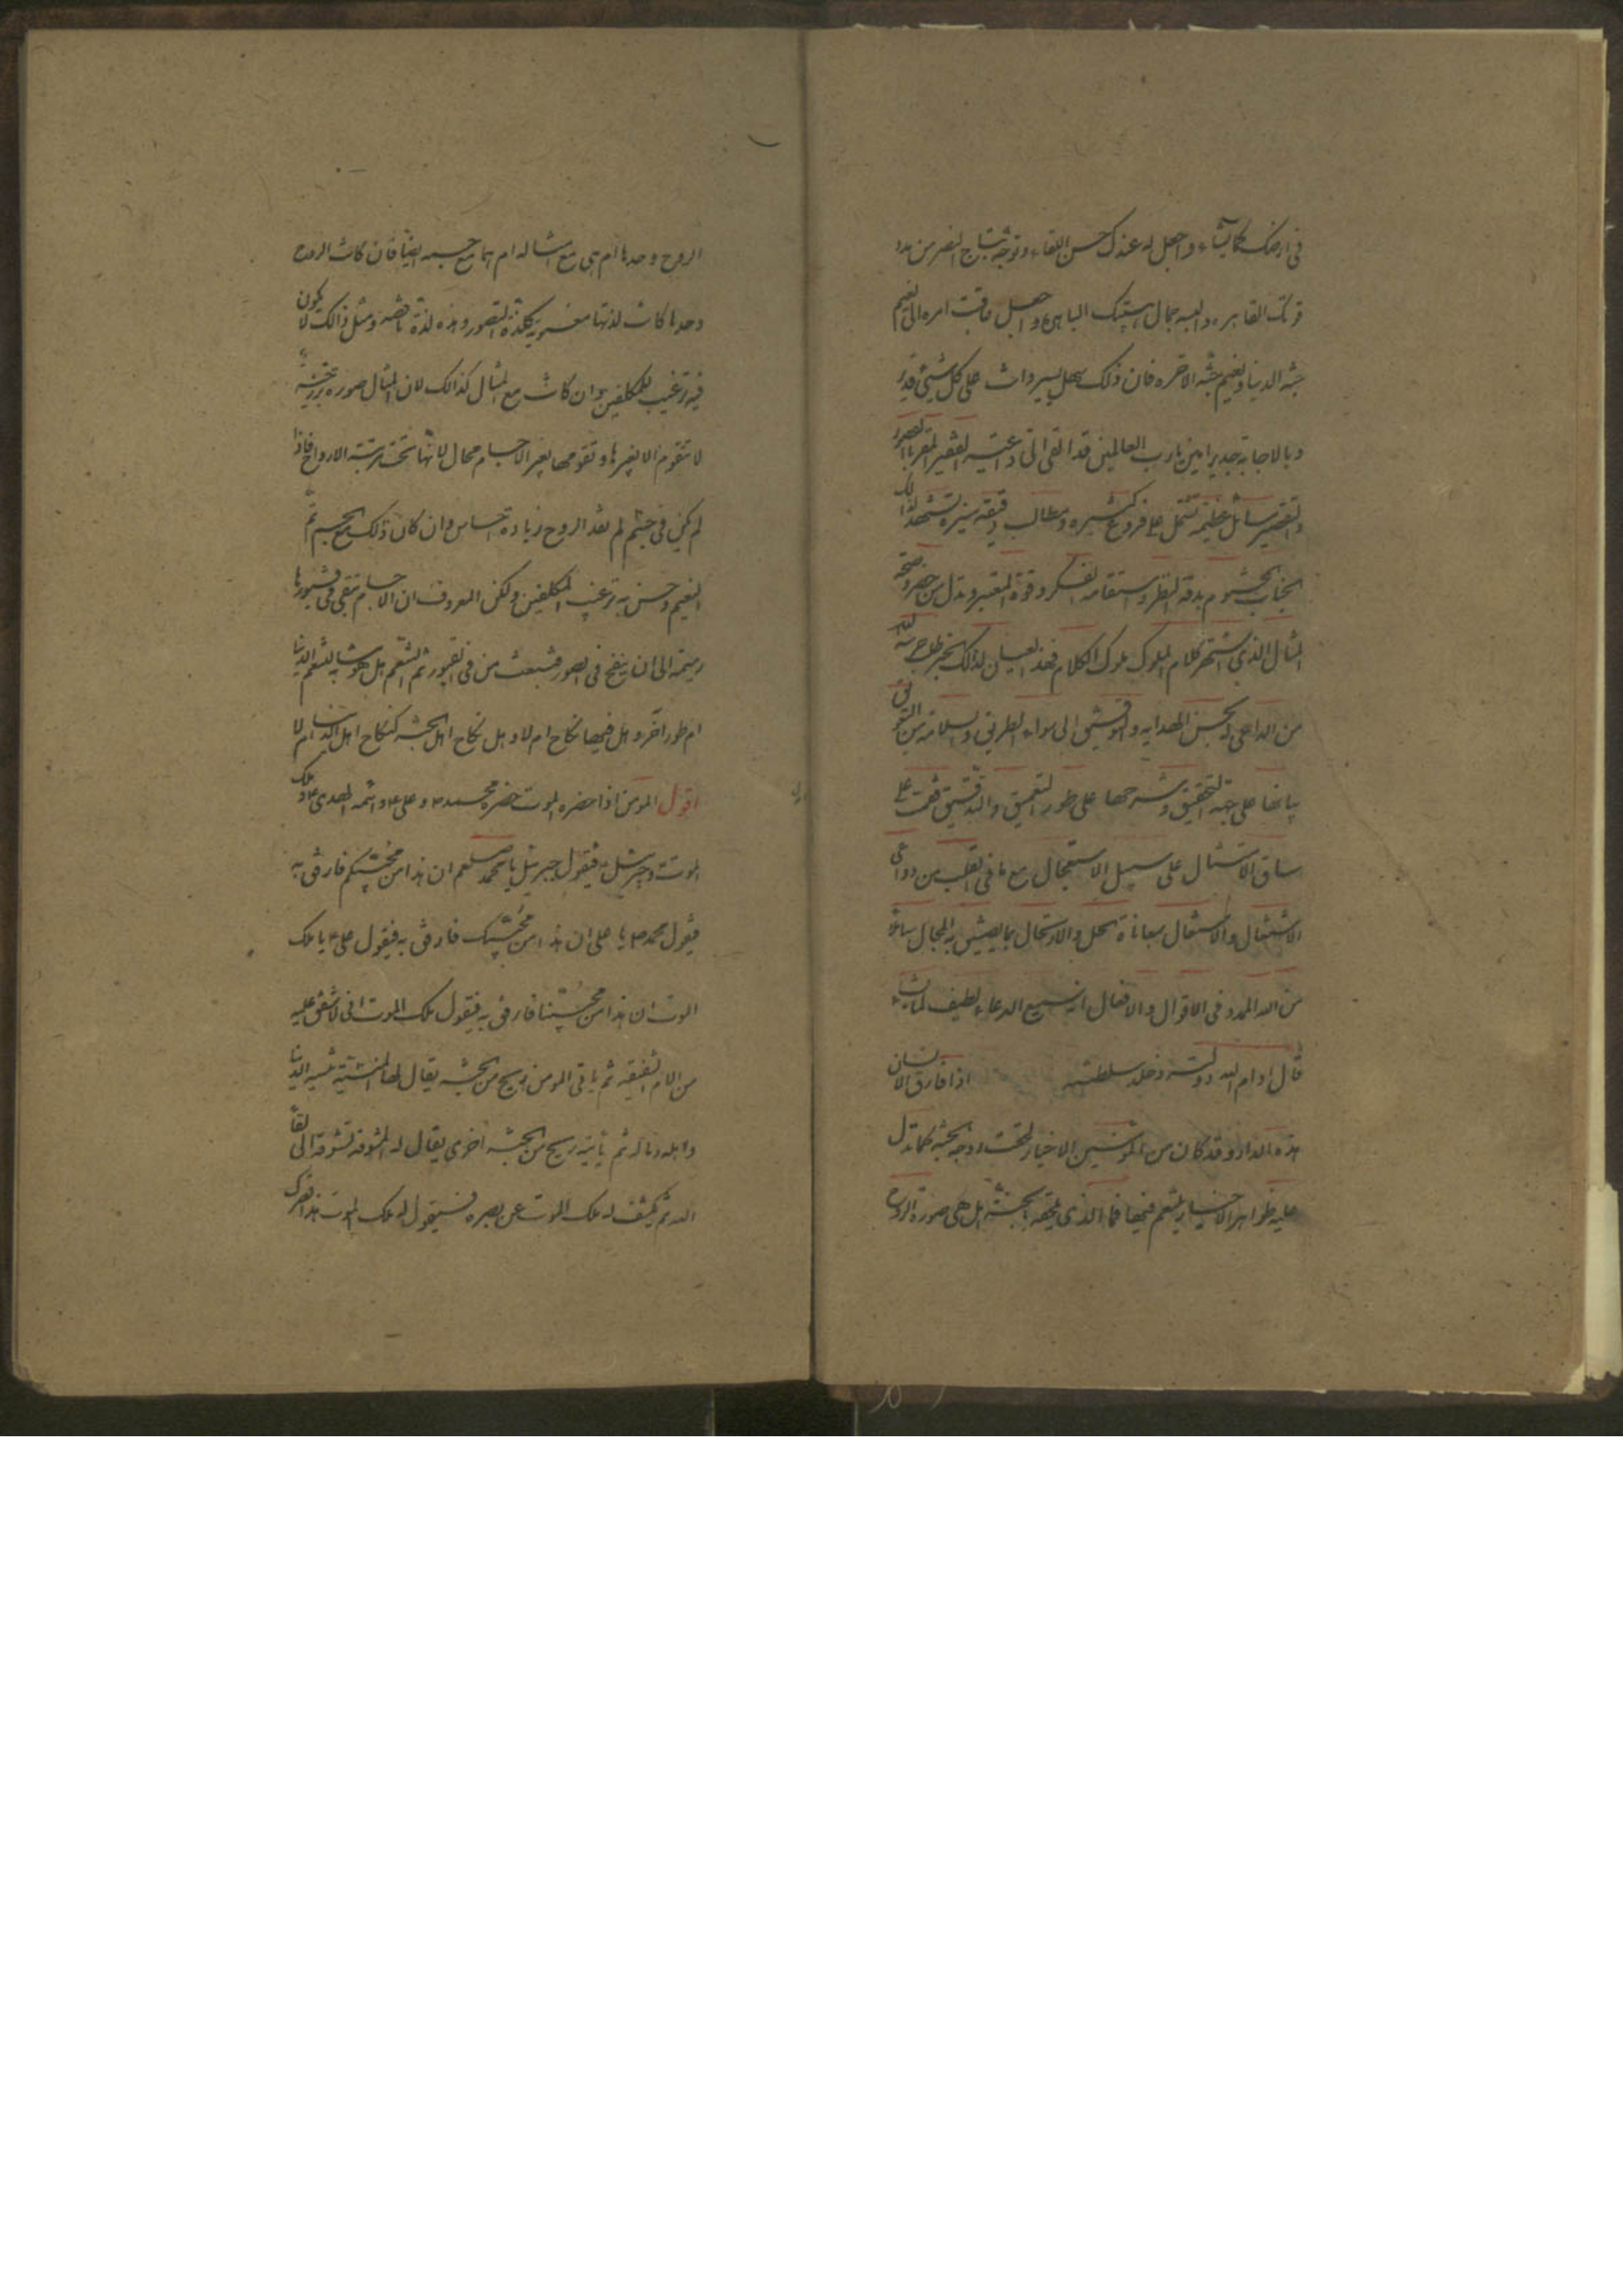 في ارضك كما يشاء واجعل له عندك حسن اللقاء وتوجه بتاج النصر من مدد
قوتك القاهره والبسه جمال هيبتك الباهرة واجعل عاقبت امره الى نعيم
جنة الدنيا ونعيم جنة الاخره فان ذلك سهل يسير وانت على كل شيئ قدير
وبالاجابة جدير امين يا رب العالمين قد القى الى داعيته الفقير المقر بالقصور
والتقصير مسائل عظيمه تشتمل على فروع كثيره ومطالب دقيقه منيره تشهد لذلك
الجناب المحتشم بدقة النظر واستقامه الفكر وقوة المعتبر وتدل من حضر وصحة
المثال الذي اشتهر كلام الملوك ملوك الكلام فعند العيان لذلك الخبر طلب حرسه الله
من الداعي له بحسن الهدايه والتوفيق الى سواء الطريق والسلامة من التعويق
بيانها على جهة التحقيق وشرحها على طور التعميق والتدقيق فقمت على
ساق الامتثال على سبيل الاستعجال مع ما في القلب من دواعي
الاشتغال والاشتعال بمعاناة الحل والارتحال بما يضيق به المجال سائلا
من الله المدد في الاقوال والافعال انه سميع الدعاء لطيف لما يشاء
قال ادام الله دولته وخلد سلطنته اذا فارق الانسان
هذه الدار وقد كان من المؤمنين الاخيار لحقت روحه بالجنة كما تدل
عليه ظواهر الاخبار يتنعم فيها فما الذي يلحقه بالجنة هل هي صورة الروح
الروح وحدها ام هي مع مثاله ام هما مع جسمه ايضا فان كانت الروح
وحدها كانت لذتها معنوية كلذة التصور وهذه لذة ناقصه ومثل ذالك لا يكون
فيه ترغيب للمكلفين وان كانت مع المثال كذالك لان المثال صوره برزخية
لا تتقوم الا بغيرها وتقومها بغير الاجسام محال لانها تحت رتبة الارواح فاذا
لم يكن في جسم لم تفد الروح زيادة احساس وان كان ذلك مع الجسم تم
النعيم وحسن به ترغيب المكلفين ولكن المعروف ان الاجسام تبقى في قبورها
رميمة الى ان ينفخ في الصور فتبعث من في القبور ثم التنعم هل هو مشابه لتنعم الدنيا
ام طور آخر وهل فيها نكاح ام لا وهل نكاح اهل الجنة كنكاح اهل الدنيا ام لا
اقول المومن اذا حضره الموت حضره محمد ص وعلى ع وائمه الهدى ع وملك
الموت وجبرئيل فيقول جبرئيل يا محمد صلعم ان هذا من محبيكم فارفق به
فيقول محمد ص يا على ان هذا من محبيك فارفق به فيقول على ع يا ملك
الموت ان هذا من محبينا فارفق به فيقول ملك الموت انى لاشفق عليه
من الام الشفيقه ثم ياتى المومن ريح من الجنة يقال لها المنسية تنسيه الدنيا
واهله وماله ثم يأتيه ريح من الجنة اخرى يقال له المشوقة تشوقه الى لقاء
الله ثم يكشف له ملك الموت عن بصره فيقول له ملك الموت هذا